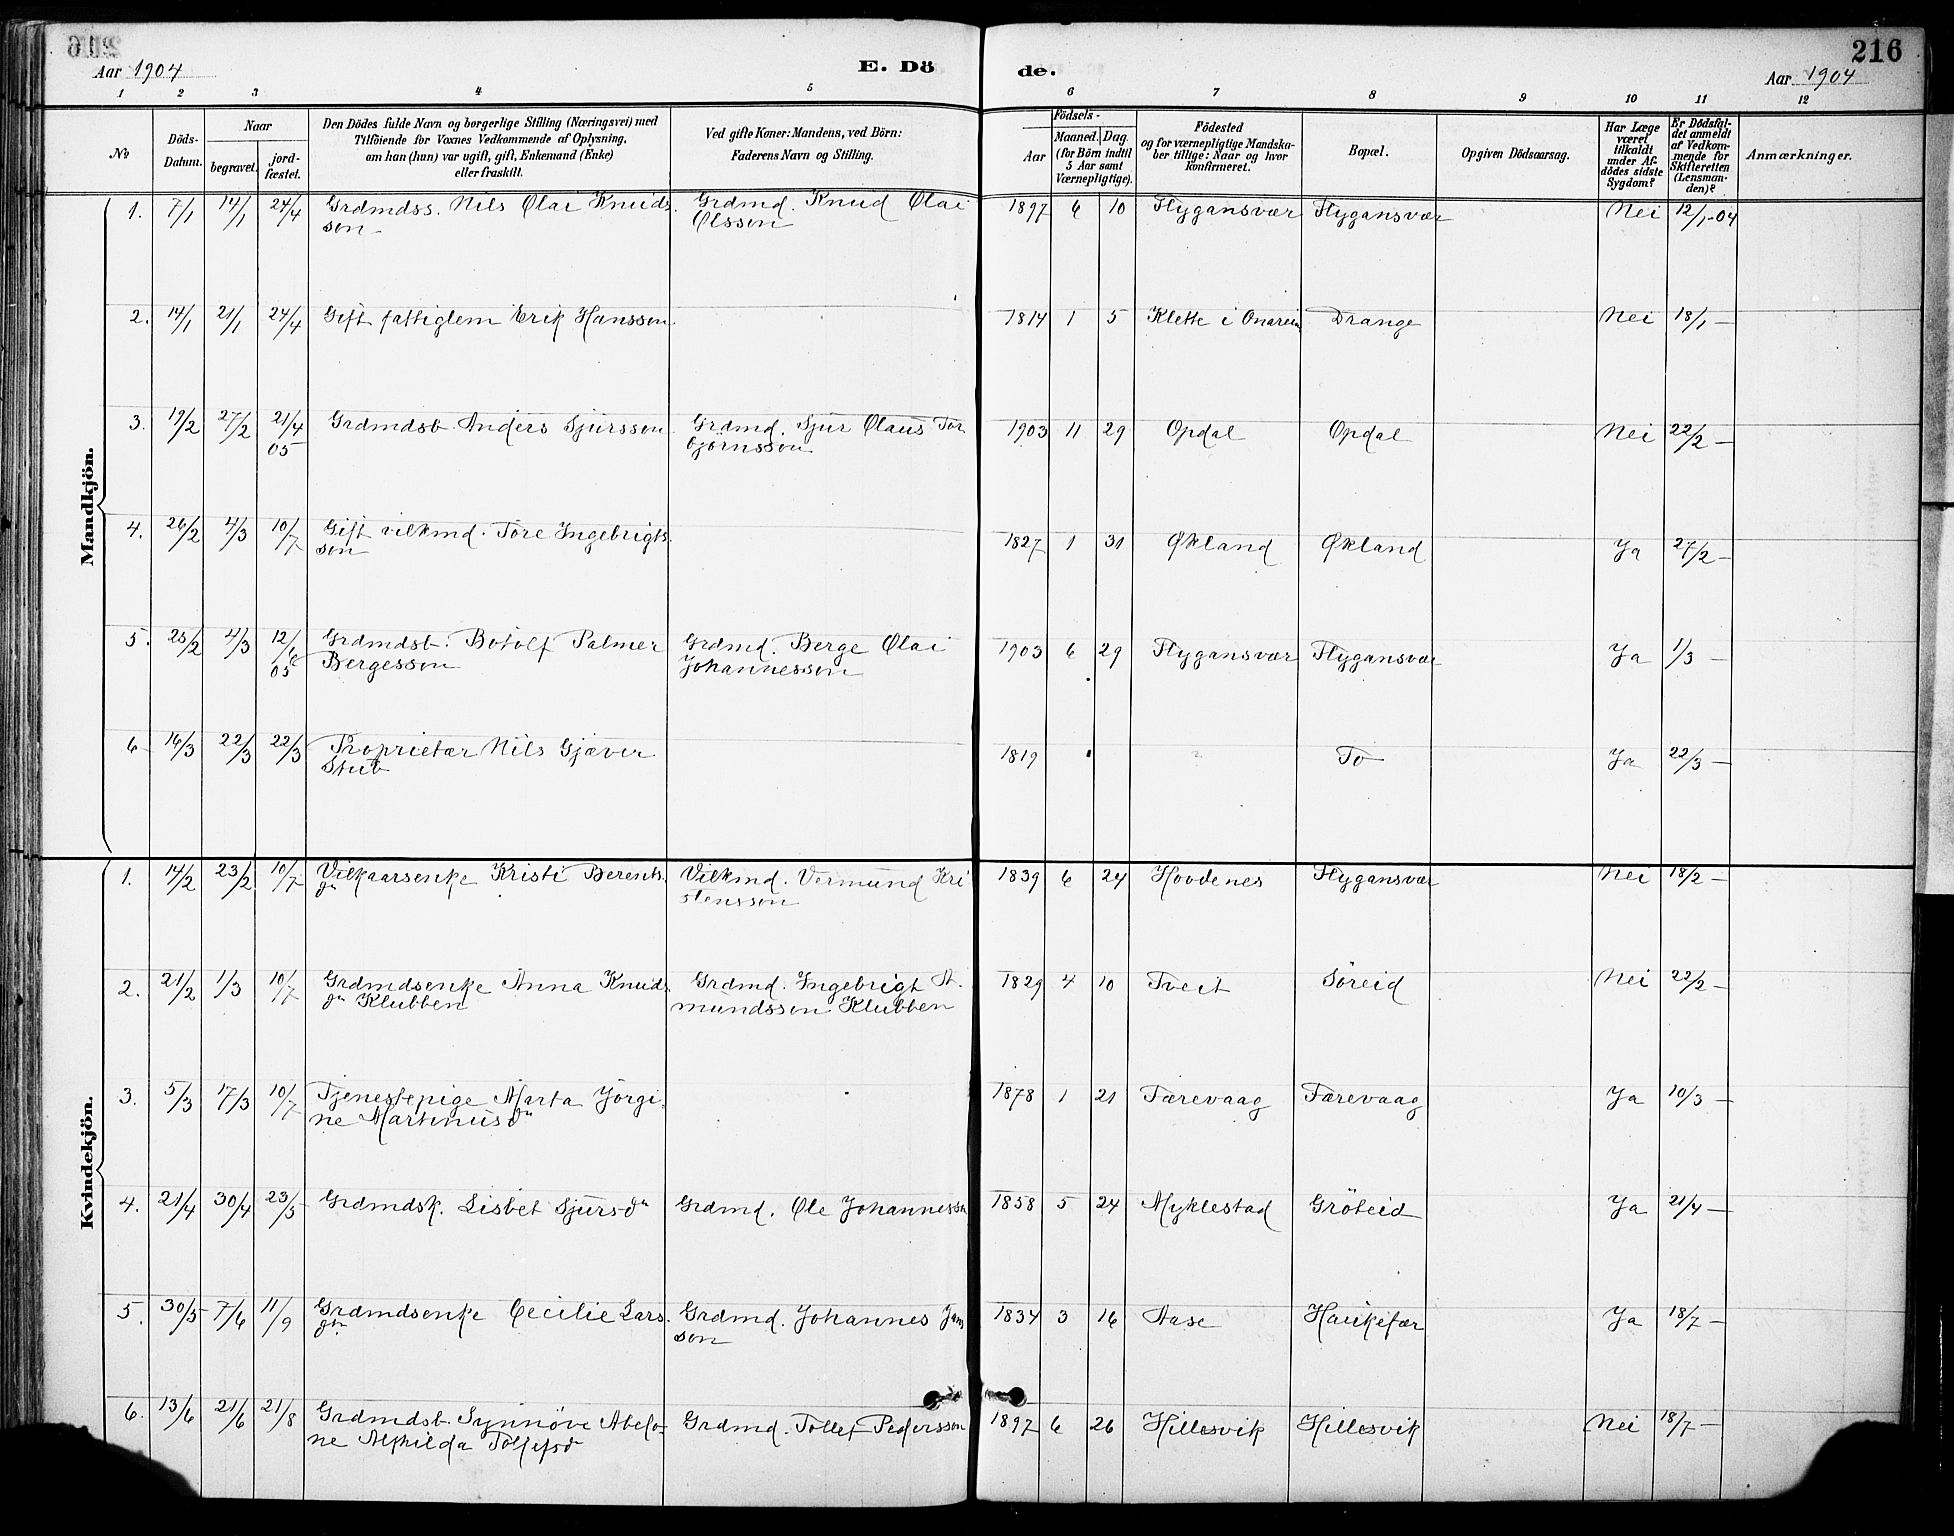 216
Aar 1904 E. Dö de. Aar 1904
1 2 3 4 5 6 7 8 9 10 11 12
№
Döds-
Datum.
Naar
begravet.
jord-
fæstet.
Den Dödes fulde Navn og borgerlige Stilling (Næringsvei) med
Tilföiende for Voxnes Vedkommende af Oplysning,
om han (hun) var ugift, gift, Enkemand (Enke)
eller fraskilt.
Ved gifte Koner: Mandens, ved Börn:
Faderens Navn og Stilling.
Födsels-
Aar
Maaned. Dag
(for Börn indtil
5 Aar samt
Værnepligtige).
Födested
og for værnepligtige Mandska-
ber tillige: Naar og hvor
konfirmeret.
Bopæl.
Opgiven Dödsaarsag.
Har Læge
været
tilkaldt
under Af-
dödes sidste
Sygdom?
Er Dödsfal-
det anmeldt
af Vedkom-
mende for
Skifteretten
(Lensman-
den)?
Anmærkninger.
Mandkjön.
1. 7/1 14/1 24/4 Grdmdss. Nils Olai Knuds- Grdmd. Knud Olai 1897 6 10 Flygansvær Flygansvær Nei 12/1-04
son Olsson
2. 14/1 21/1 24/4 Gift fattiglem Erik Hansson 1814 1 5 Klette i Onarein Drange Nei 18/1 —
3. 19/2 27/2 21/4 Grdmdsb. Anders Sjursson Grdmd. Sjur Olaus Tor 1903 11 29 Opdal Opdal Nei 22/2 —
05 bjørnsson
4. 26/2 4/3 10/7 Gift vilkmd. Tore Ingebrigts- 1827 1 31 Økland Økland Ja 27/2 —
son
5. 25/2 4/3 12/6 Grdmdsb. Botolf Palmer Grdmd. Berge Olai 1903 6 29 Flygansvær Flygansvær Ja 1/3 —
05 Bergesson Johannesson
6 16/3 22/3 22/3 Proprietær Nils Gjæver 1819 To Ja 22/3 —
Stub
Kvindekjön.
1. 14/2 23/2 10/7 Vilkaarsenke Kristi Berents- Vilkmd. Vermund Kri 1839 6 24 Hovdenes Flygansvær Nei 18/2 —
dn stensson
2. 21/2 1/3 10/7 Grdmdsenke Anna Knuds- Grdmd. Ingebrigt A- 1829 4 10 Tveit Söreid Nei 22/2 —
dn Klubben mundsson Klubben
3. 5/3 17/3 10/7 Tjenestepige Marta Jörgi- 1878 1 21 Færevaag Færevaag Ja 10/3 —
ne Martinusdn
4. 21/4 30/4 23/5 Grdmdsk. Lisbet Sjursdn Grdmd. Ole Johannesson 1858 5 24 Myklestad Gröteid Ja 21/4 —
5. 30/5 7/6 11/9 Grdmdsenke Cecilie Lars- Grdmd. Johannes Jans 1834 3 16 Aase Haukefær Ja 18/7 —
dtr son
6. 13/6 21/6 21/8 Grdmdsb. Synnöve Abelo- Grdmd. Tollef Pedersson 1897 6 26 Hillesvik Hillesvik Nei 18/7 —
ne Alfhilda Tollefsd